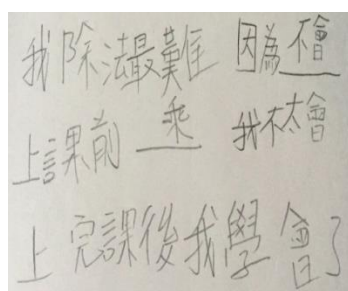 我除法最難 因為不會
上課前 乘 我不太會
上完課後我學會了